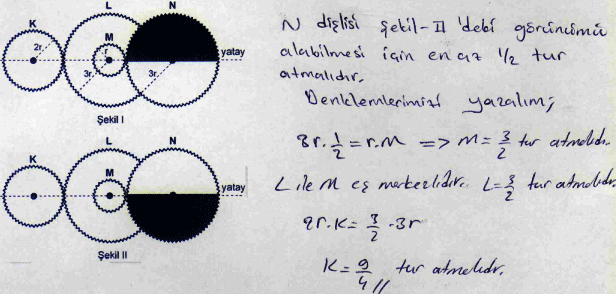 K
L
N
2r
M
r
3r
3r
yatay
Şekil I
K
L
N
M
yatay
Şekil II
N dişlisi Şekil-II 'deki görünümü
alabilmesi için en az 1/2 tur
atmalıdır.
Denklemlerimizi yazalım;
3r.1/2 = r.M => M = 3/2 tur atmalıdır.
L ile M eş merkezlidir. L=3/2 tur atmalıdır.
2r.K = 3/2 .3r
K = 9/4 // tur atmalıdır.